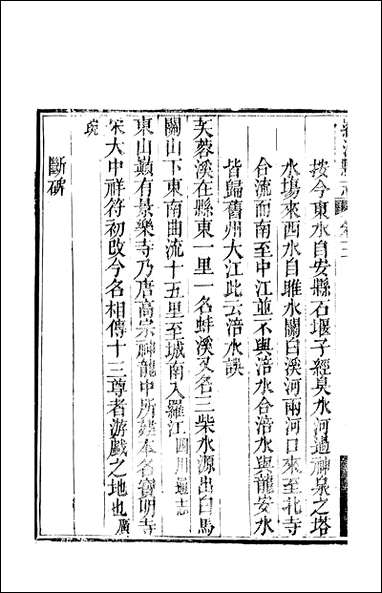 按今東水自安縣石堰子經臭水河過神泉之塔
水塲來西水自雎水關白溪河兩河口來至北寺
合流而南至中江並不與涪水合涪水與龍安水
皆歸舊州大江此云涪水誤
芙蓉溪在縣東一里一名蚌溪又名三柴水源出白馬
關山下東南曲流十五里至城南入羅江四川通志
東山巔有景樂寺乃唐高宗神龍中所建本名寶明寺
宋大中祥符初改今名相傳十三尊者游戲之地也廣
斷碑